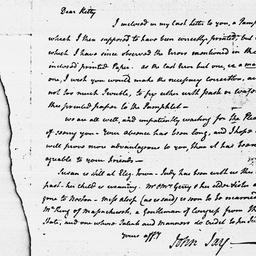 Dear Kitty
I inclosed in my last Letter to you, a Pamp
which I then supposed to have been correctly printed; but
which I have since observed the Errors mentioned in the
inclosed printed Paper. as the last Error but one, is a ma
one, I wish you would make the necessary correction, an
not too much Trouble, to fix either with paste or wafer
the printed paper to the Pamphlet—
we are all well, and impatiently waiting for the Plea
of seeing you. Your absence has been long, and I hope
will prove more advantageous to you, than it has been
agreable to your Friends—
Susan is still at Eliz. Town— Judy has been with us the
past. her child is weaning. Mr. & Mrs. Gerry & her Sister
gone to Boston— Miss (as is said) is soon to be married
Mr. King of Massachusets, a Gentleman of Congress from th
State, and one whose Talents and Manners do credit to
yours affy.
John Jay—